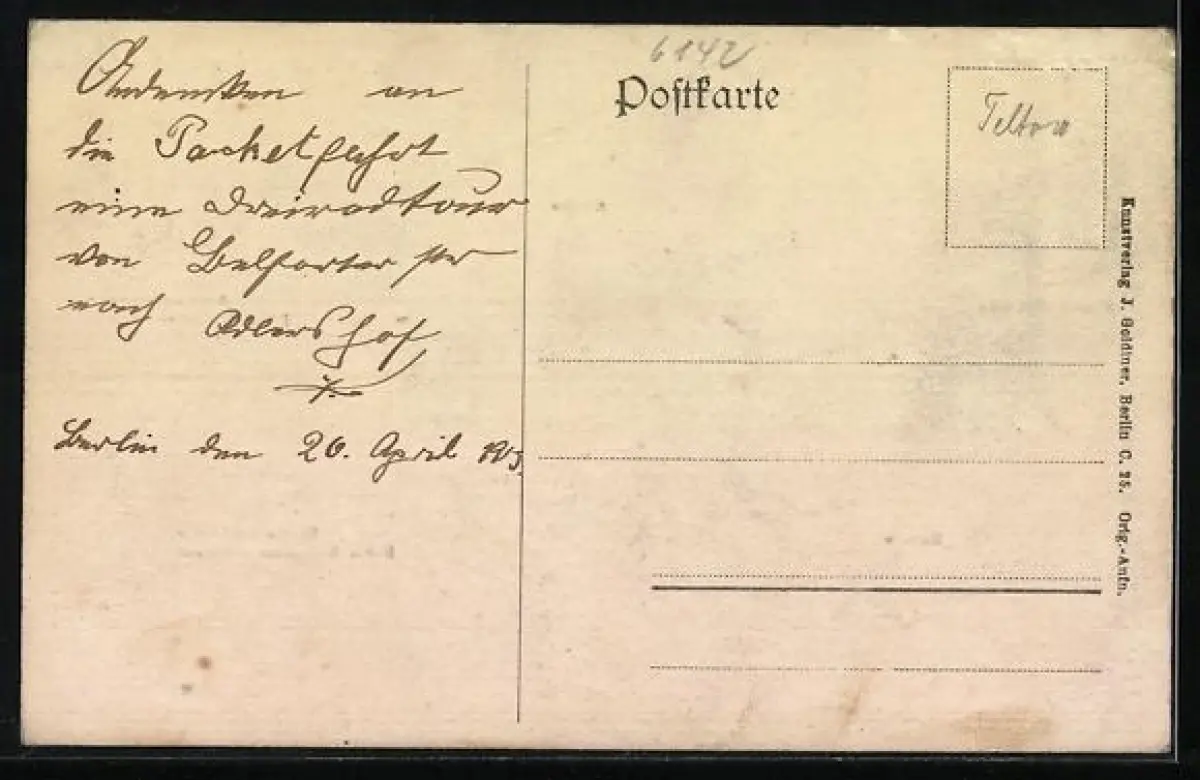 6142
Postkarte
Teltow
Andenken an
die Packetfahrt
eine Dreiradtour
von Belforter str
nach Adlershof
Berlin den 26. April
Kunstverlag J. Goldiner, Berlin C. 25. Orig.-Aufn.